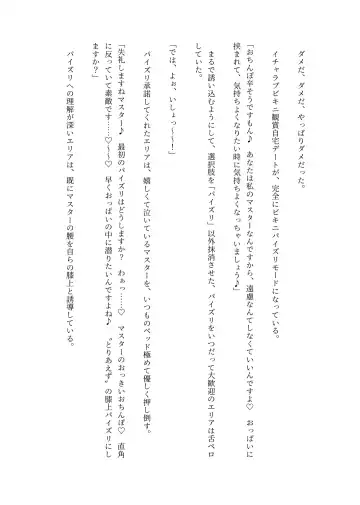 ダメだ、ダメだ、やっぱりダメだった。
イチャラブビキニ観賞自宅デートが、完全にビキニパイズリモードになっている。
「おちんぽ辛そうですもん♪　あなたは私のマスターなんですから、遠慮なんてしなくていいんですよ♡　おっぱいに
挟まれて、気持ちよくなりたい時に気持ちよくなっちゃいましょう♪」
まるで誘い込むようにして、選択肢を「パイズリ」以外抹消させた、パイズリをいつだって大歓迎のエリアは舌ペロ
していた。
「では、よぉ、いしょっ～～！」
パイズリ承諾してくれたエリアは、嬉しくて泣いているマスターを、いつものベッド極めて優しく押し倒す。
「失礼しますねマスター♪　最初のパイズリはどうしますか？　わぁっ……♡　マスターのおっきいおちんぽ♡　直角
に反っていて素敵です……♡～♡　早くおっぱいの中に潜りたいんですよね♪　〝とりあえず〟の膝上パイズリにし
ますか？」
パイズリへの理解が深いエリアは、既にマスターの腰を自らの膝上へと誘導している。